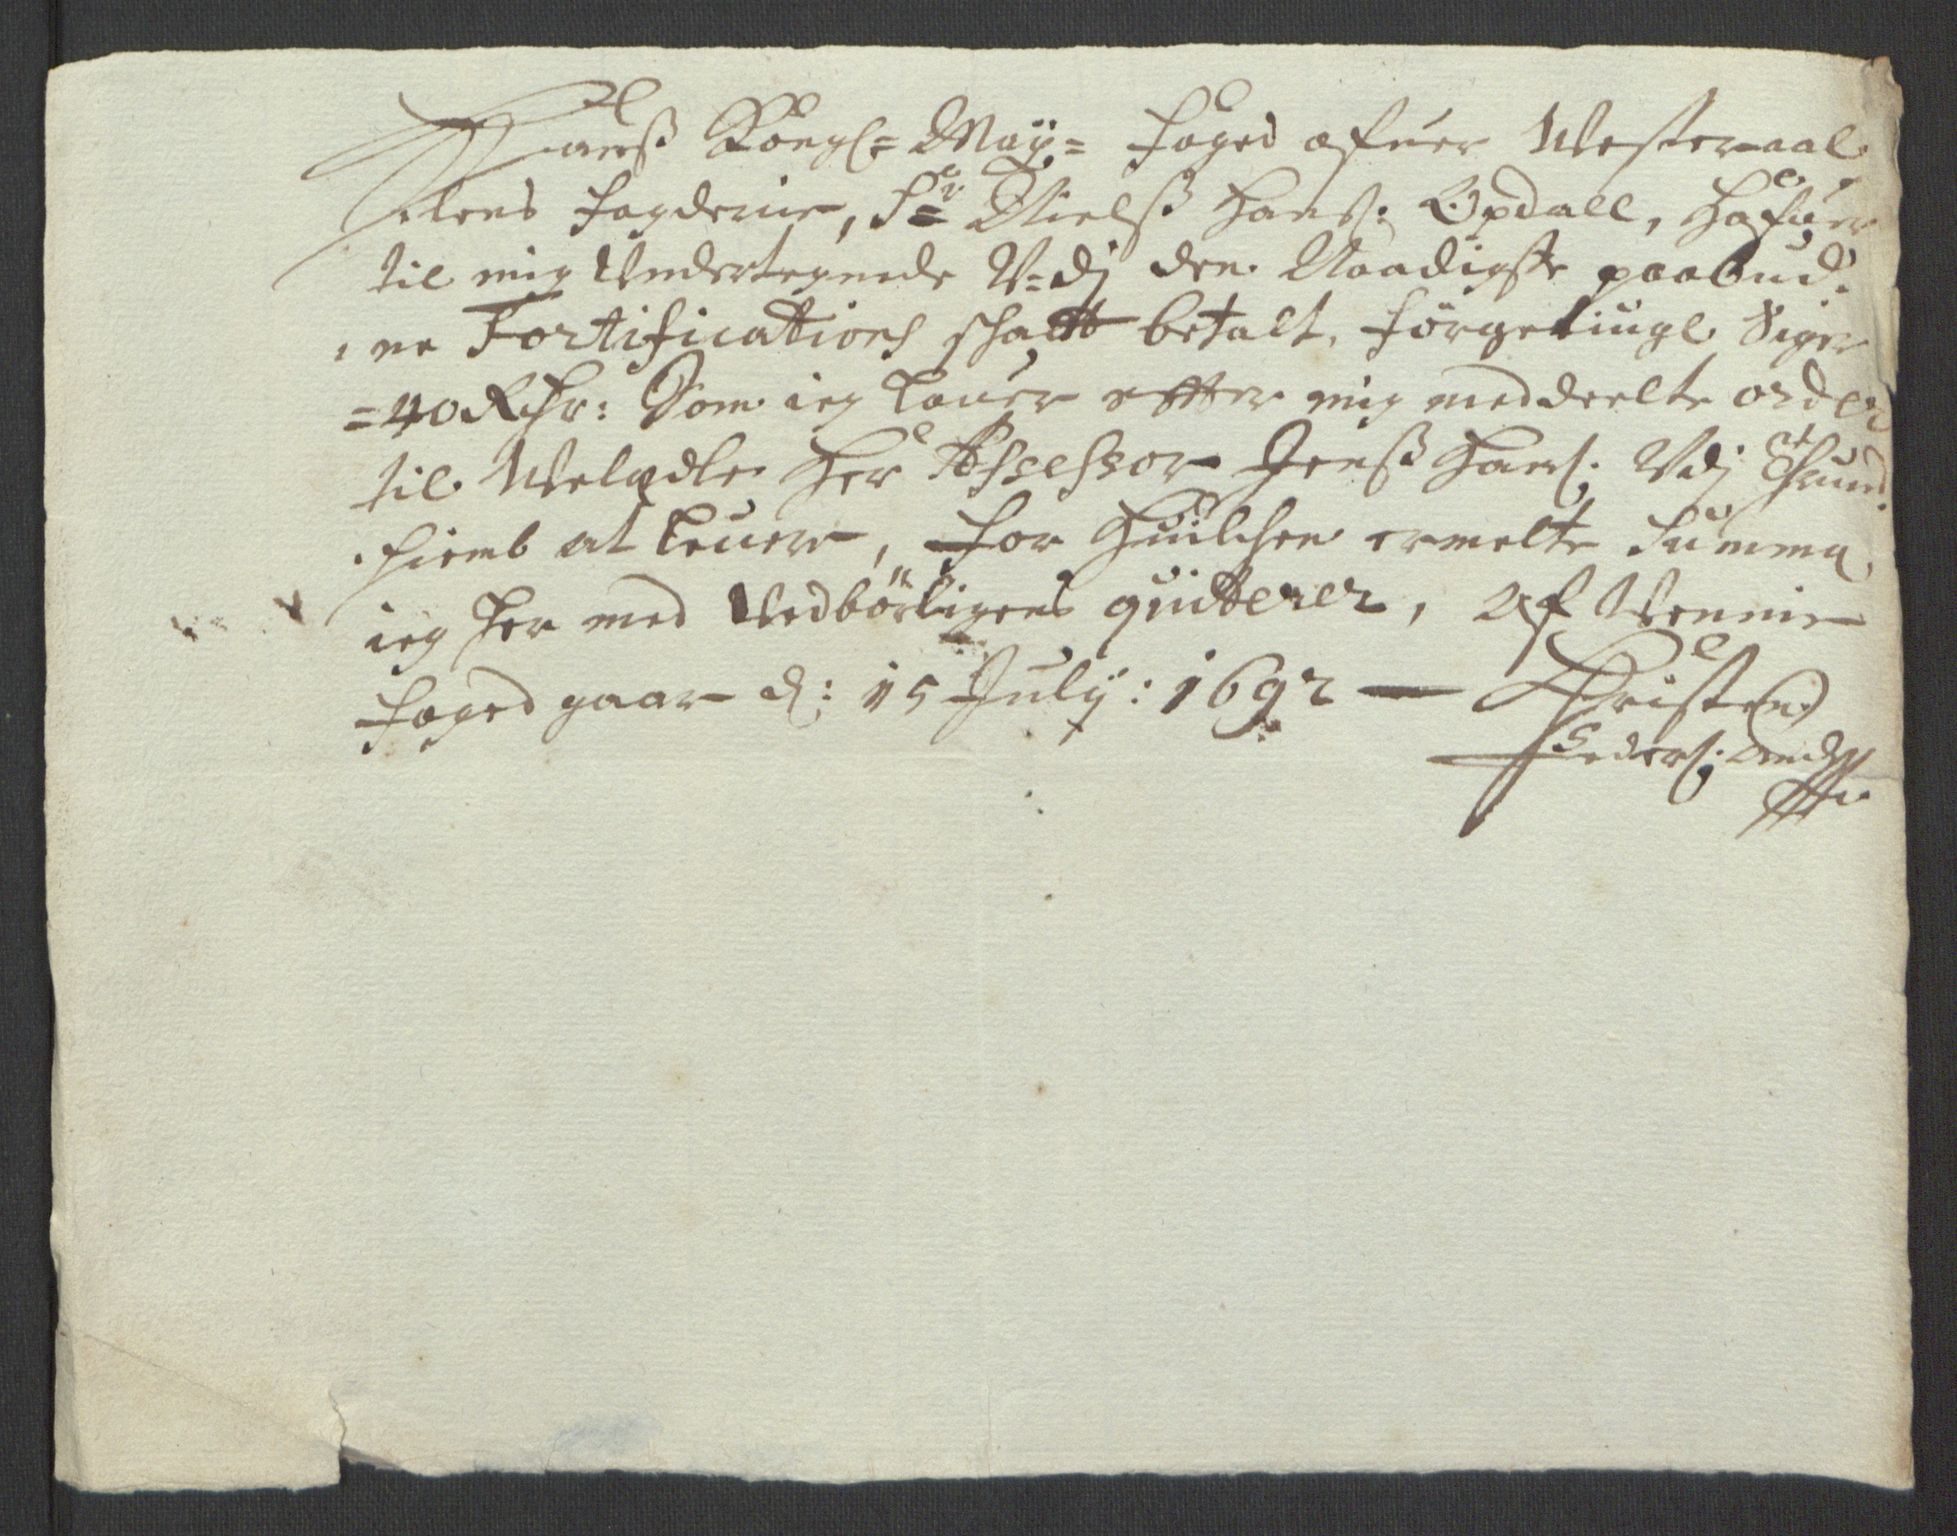 Hanß Kongl= May= foged ofuer Westeraal,
,lens fogderie, Sr= Nielß Hanß: Opdall, Hafuer
til mig Undertegnede V=dj den Naadigste paabud,
,ne Fortifications schatt betalt, förgetiuge siger
=40 Rdr: Som ieg lauer effter mig meddeelte order
til Welædle Her Assessor Jenß Hans: Vdj Thrund,
,hiemb at leuere, for Huilchen ermelte Summa
ieg her med Vedbörligens quitterer, Af Wennie
foged gaar d: 15 July: 1692 — Christen
Peders: